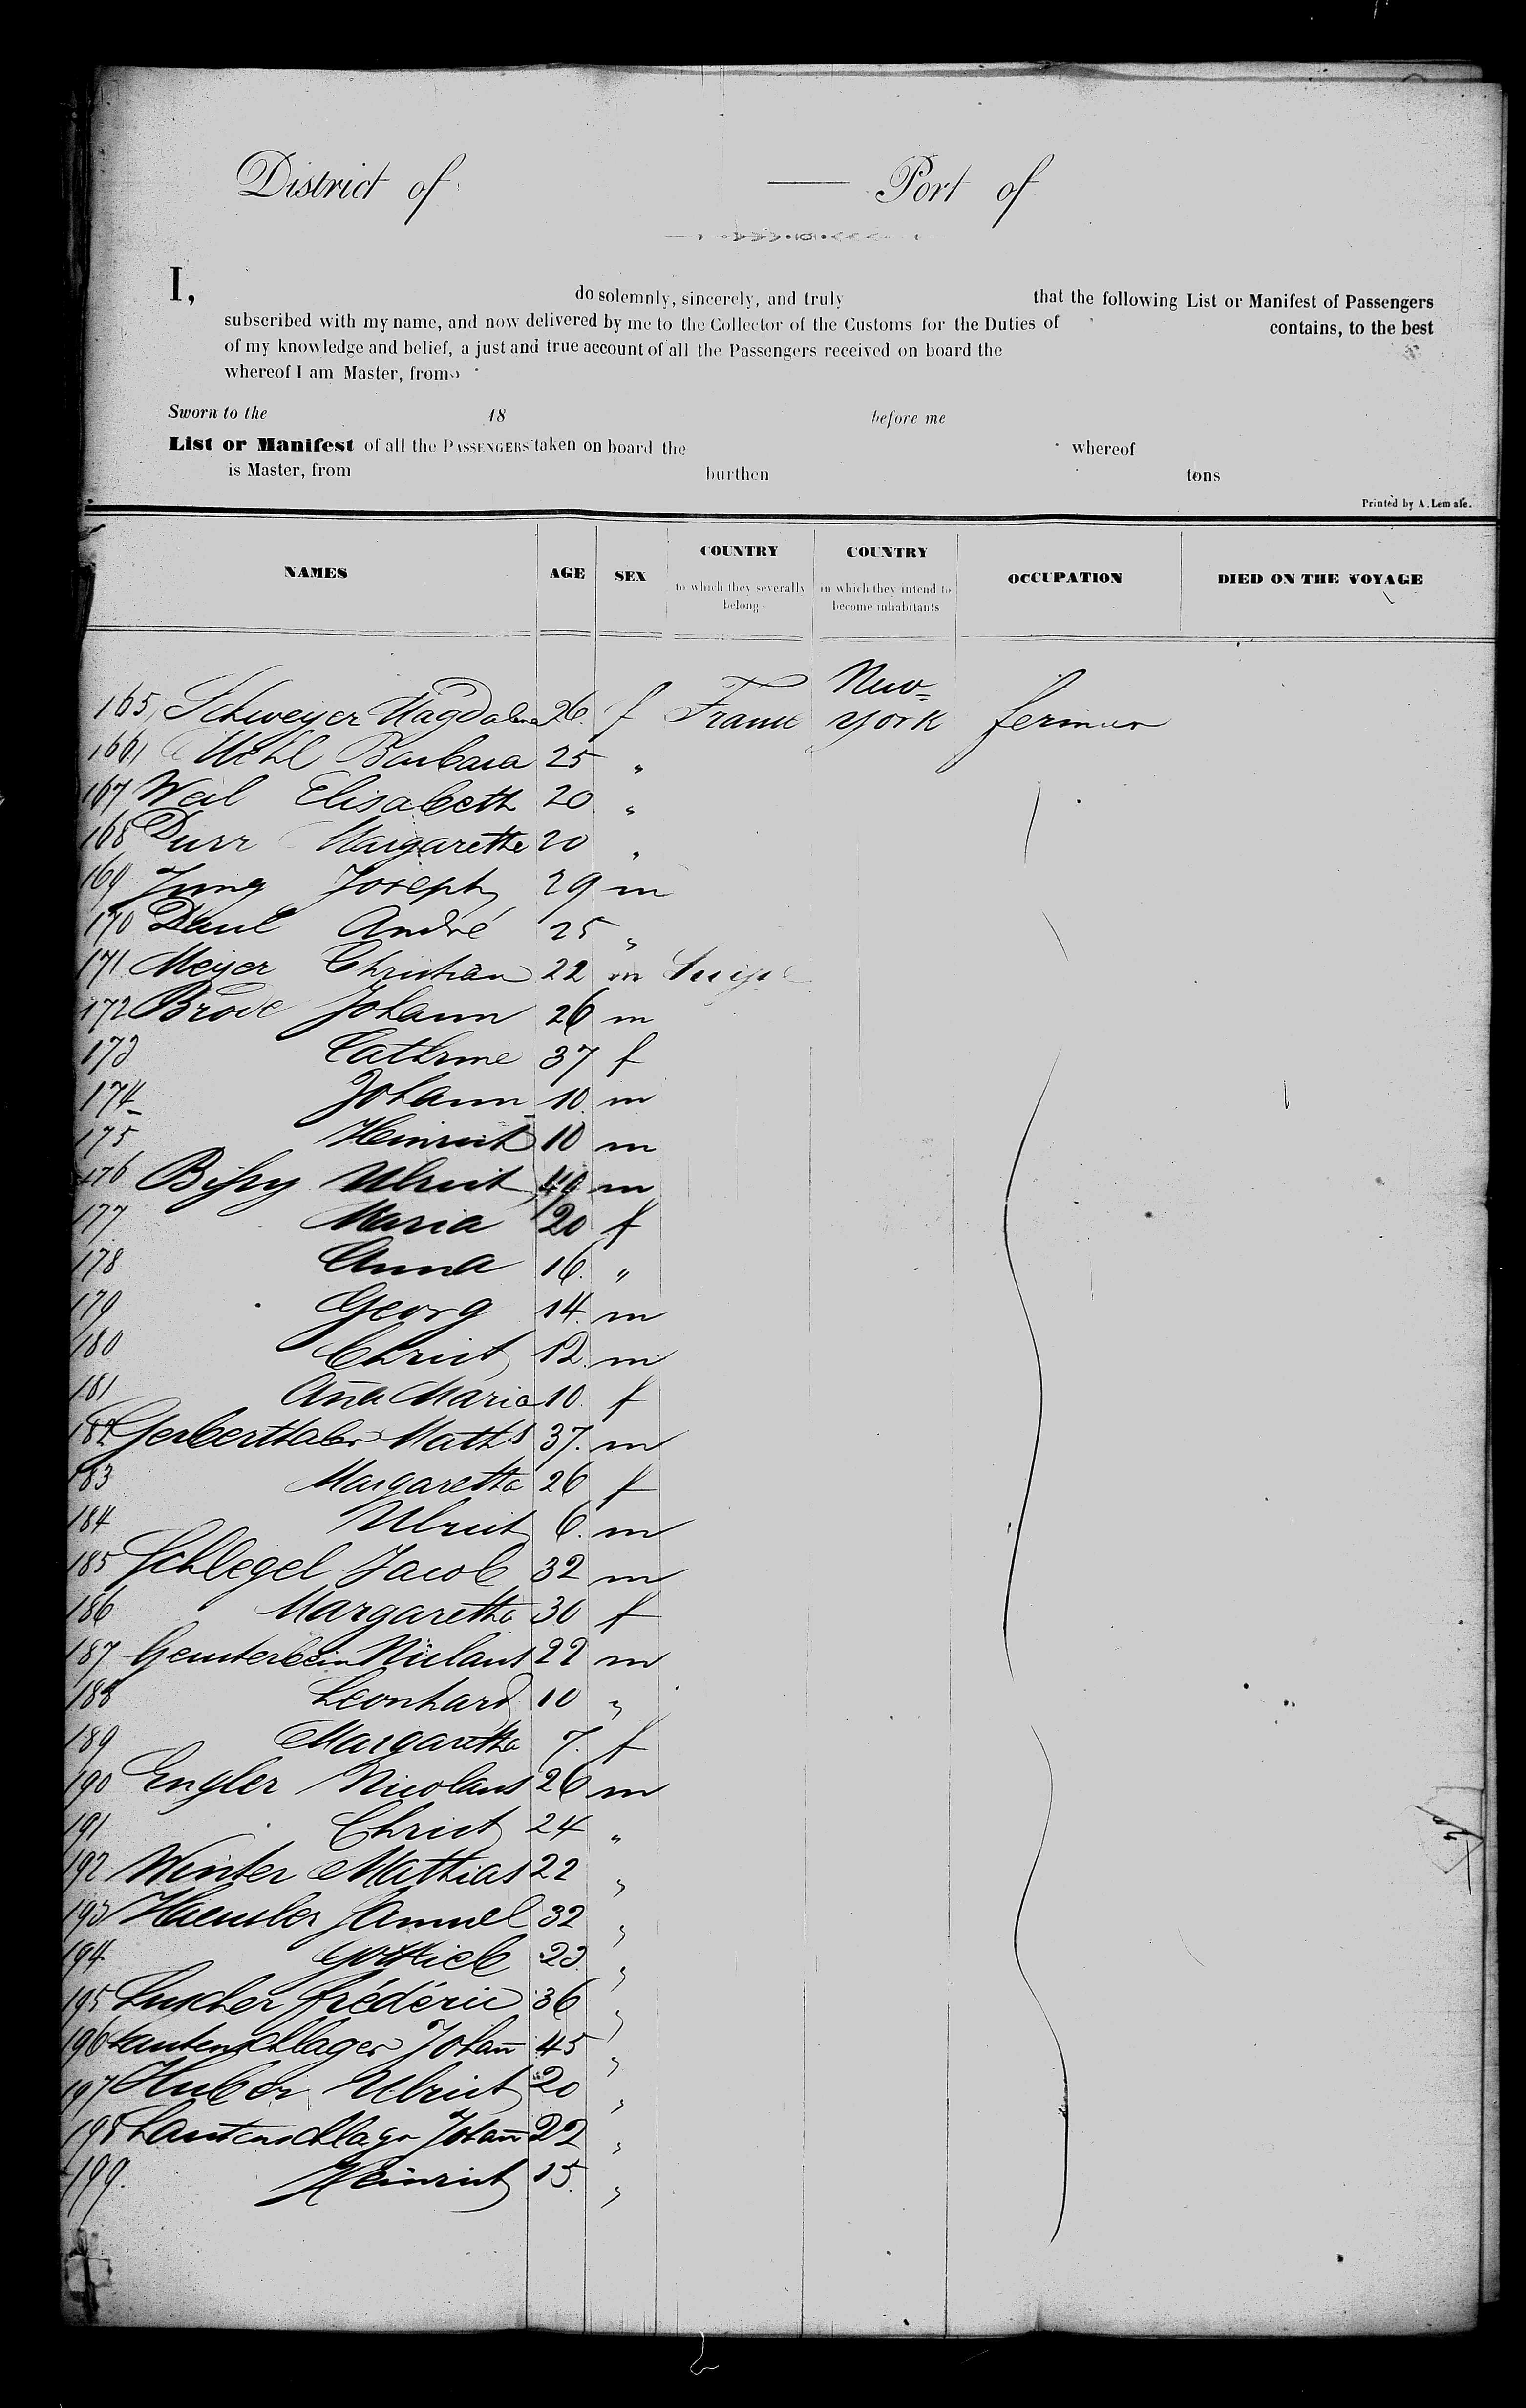 District of — Port of
I, do solemnly, sincerely, and truly that the following List or Manifest of Passengers
subscribed with my name, and now delivered by me to the Collector of the Customs for the Duties of contains, to the best
of my knowledge and belief, a just and true account of all the Passengers received on board the
whereof I am Master, from
Sworn to the 18 before me
List or Manifest of all the PASSENGERS taken on board the whereof
is Master, from burthen tons
Printed by A. Lemale.
NAMES AGE SEX COUNTRY to which they severally belong COUNTRY in which they intend to become inhabitants OCCUPATION DIED ON THE VOYAGE
165 Schweyer Magdalena 26 f France New=york fermer
166 Uhl Barbara 25 "
167 Weil Elisabeth 20 "
168 Durr Margaretha 20 "
169 Jung Joseph 29 m
170 Daul André 25 "
171 Meyer Christian 22 m
172 Brode Johann 26 m
173 Cathrine 37 f
174 Johann 10 m
175 Heinrich 10 m
176 Ulrich m
177 Maria 20 f
178 Anna 16 "
179 Georg 14 m
180 Christ 12 m
181 Aña Maria 10 f
182 Gerberthaler Maths 37 m
183 Margaretha 26 f
184 Ulrich 6 m
185 Schlegel Jacob 32 m
186 Margaretha 30 f
187 Niclaus 22 m
188 Leonhard 10 "
189 Margaretha 7 f
190 Engler Nicolaus 26 m
191 Christ 24 "
192 Winter Mathias 22 "
193 Samuel 32 "
194 Gottlieb 23 "
195 Luscher frédéric 36 "
196 Lautenschlager Johañ 45 "
197 Huber Ulrich 20 "
198 Lautenschlager Johañ 22 "
199. Heinrich 15 "